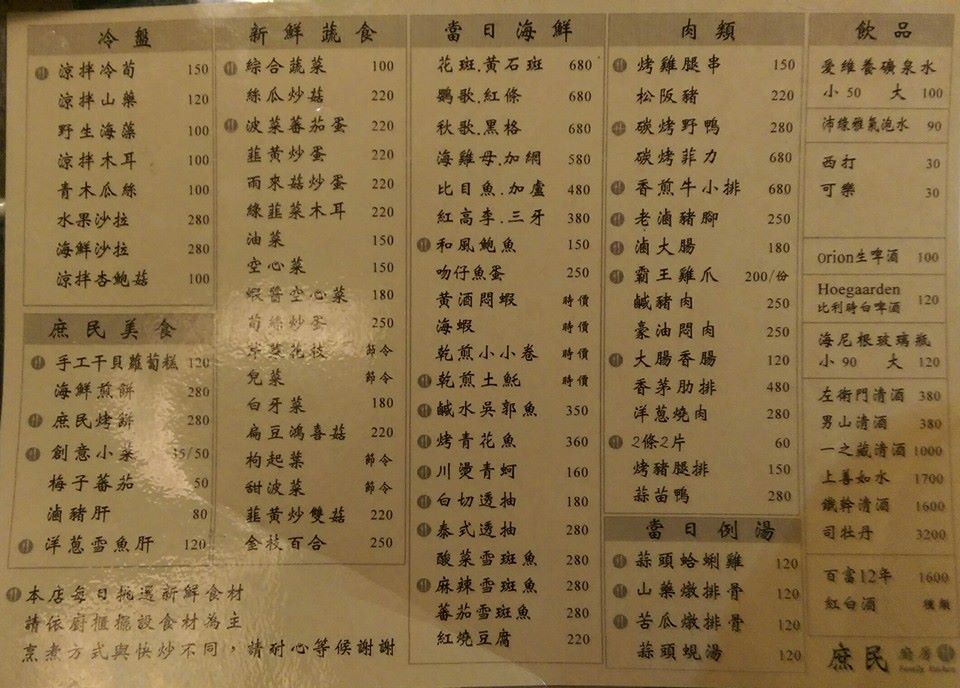 冷盤
涼拌冷荀 150
涼拌山藥 120
野生海藻 100
涼拌木耳 100
青木瓜絲 100
水果沙拉 280
海鮮沙拉 280
涼拌杏鮑菇 100
庶民美食
手工干貝蘿蔔糕 120
海鮮煎餅 280
庶民烤餅 280
創意小菜 35/50
梅子蕃茄 50
滷豬肝 80
洋蔥雪魚肝 120
新鮮蔬食
綜合蔬菜 100
絲瓜炒菇 220
波菜蕃茄蛋 220
韮黃炒蛋 220
雨來菇炒蛋 220
綠韮菜木耳 220
油菜 150
空心菜 150
蝦醬空心菜 180
荀絲炒蛋 250
花枝 節令
兒菜 節令
白牙菜 180
扁豆鴻喜菇 220
枸起葉 節令
甜波菜 節令
韮黃炒雙菇 220
金枝百合 250
當日海鮮
花斑.黃石斑 680
鸚歌.紅條 680
秋歌.黑格 680
海雞母.加網 580
比目魚.加盧 480
紅高李.三牙 380
和風鮑魚 150
吻仔魚蛋 250
黃酒悶蝦 時價
海蝦 時價
乾煎小小卷 時價
乾煎土魠 時價
鹹水吳郭魚 350
烤青花魚 360
川燙青蚵 160
白切透抽 180
泰式透抽 280
酸菜雪斑魚 280
麻辣雪斑魚 280
蕃茄雪斑魚 280
紅燒豆腐 220
肉類
烤雞腿串 150
松阪豬 220
碳烤野鴨 280
碳烤菲力 680
香煎牛小排 680
老滷豬腳 250
滷大腸 180
霸王雞爪 200/份
鹹豬肉 250
豪油悶肉 250
大腸香腸 120
香茅肋排 480
洋蔥燒肉 280
2條2片 60
烤豬腿排 150
蒜苗鴨 280
當日例湯
蒜頭蛤蜊雞 120
山藥燉排骨 120
苦瓜燉排骨 120
蒜頭蜆湯 120
飲品
愛維養礦泉水
小 50 大 100
沛綠雅氣泡水 90
西打 30
可樂 30
Orion生啤酒 100
Hoegaarden
比利時白啤酒 120
海尼根玻璃瓶
小 90 大 120
左衛門清酒 380
男山清酒 380
一之藏清酒 1000
上善如水 1700
鐵幹清酒 1600
司牡丹 3200
百富12年 1600
紅白酒
本店每日挑選新鮮食材
請依廚櫃擺設食材為主
烹煮方式與快炒不同，請耐心等候謝謝
庶民 廚房
Family Kitchen